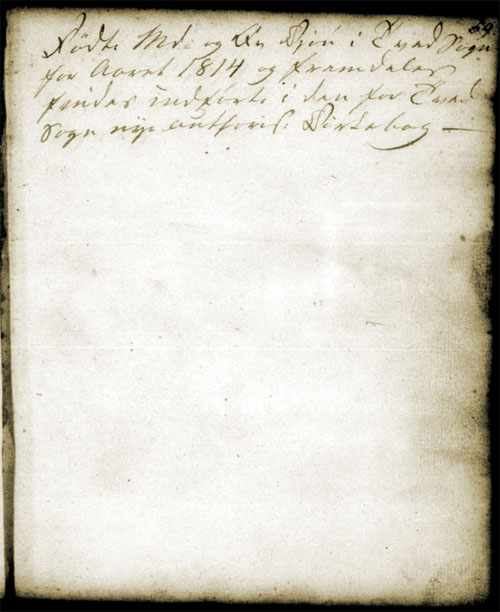 Födte Md. og Qv. Kjön i Tved Sogn
for Aaret 1814 og fremdeles
findes indförte i den for Tved
Sogn nye authoris: Kirkebog —